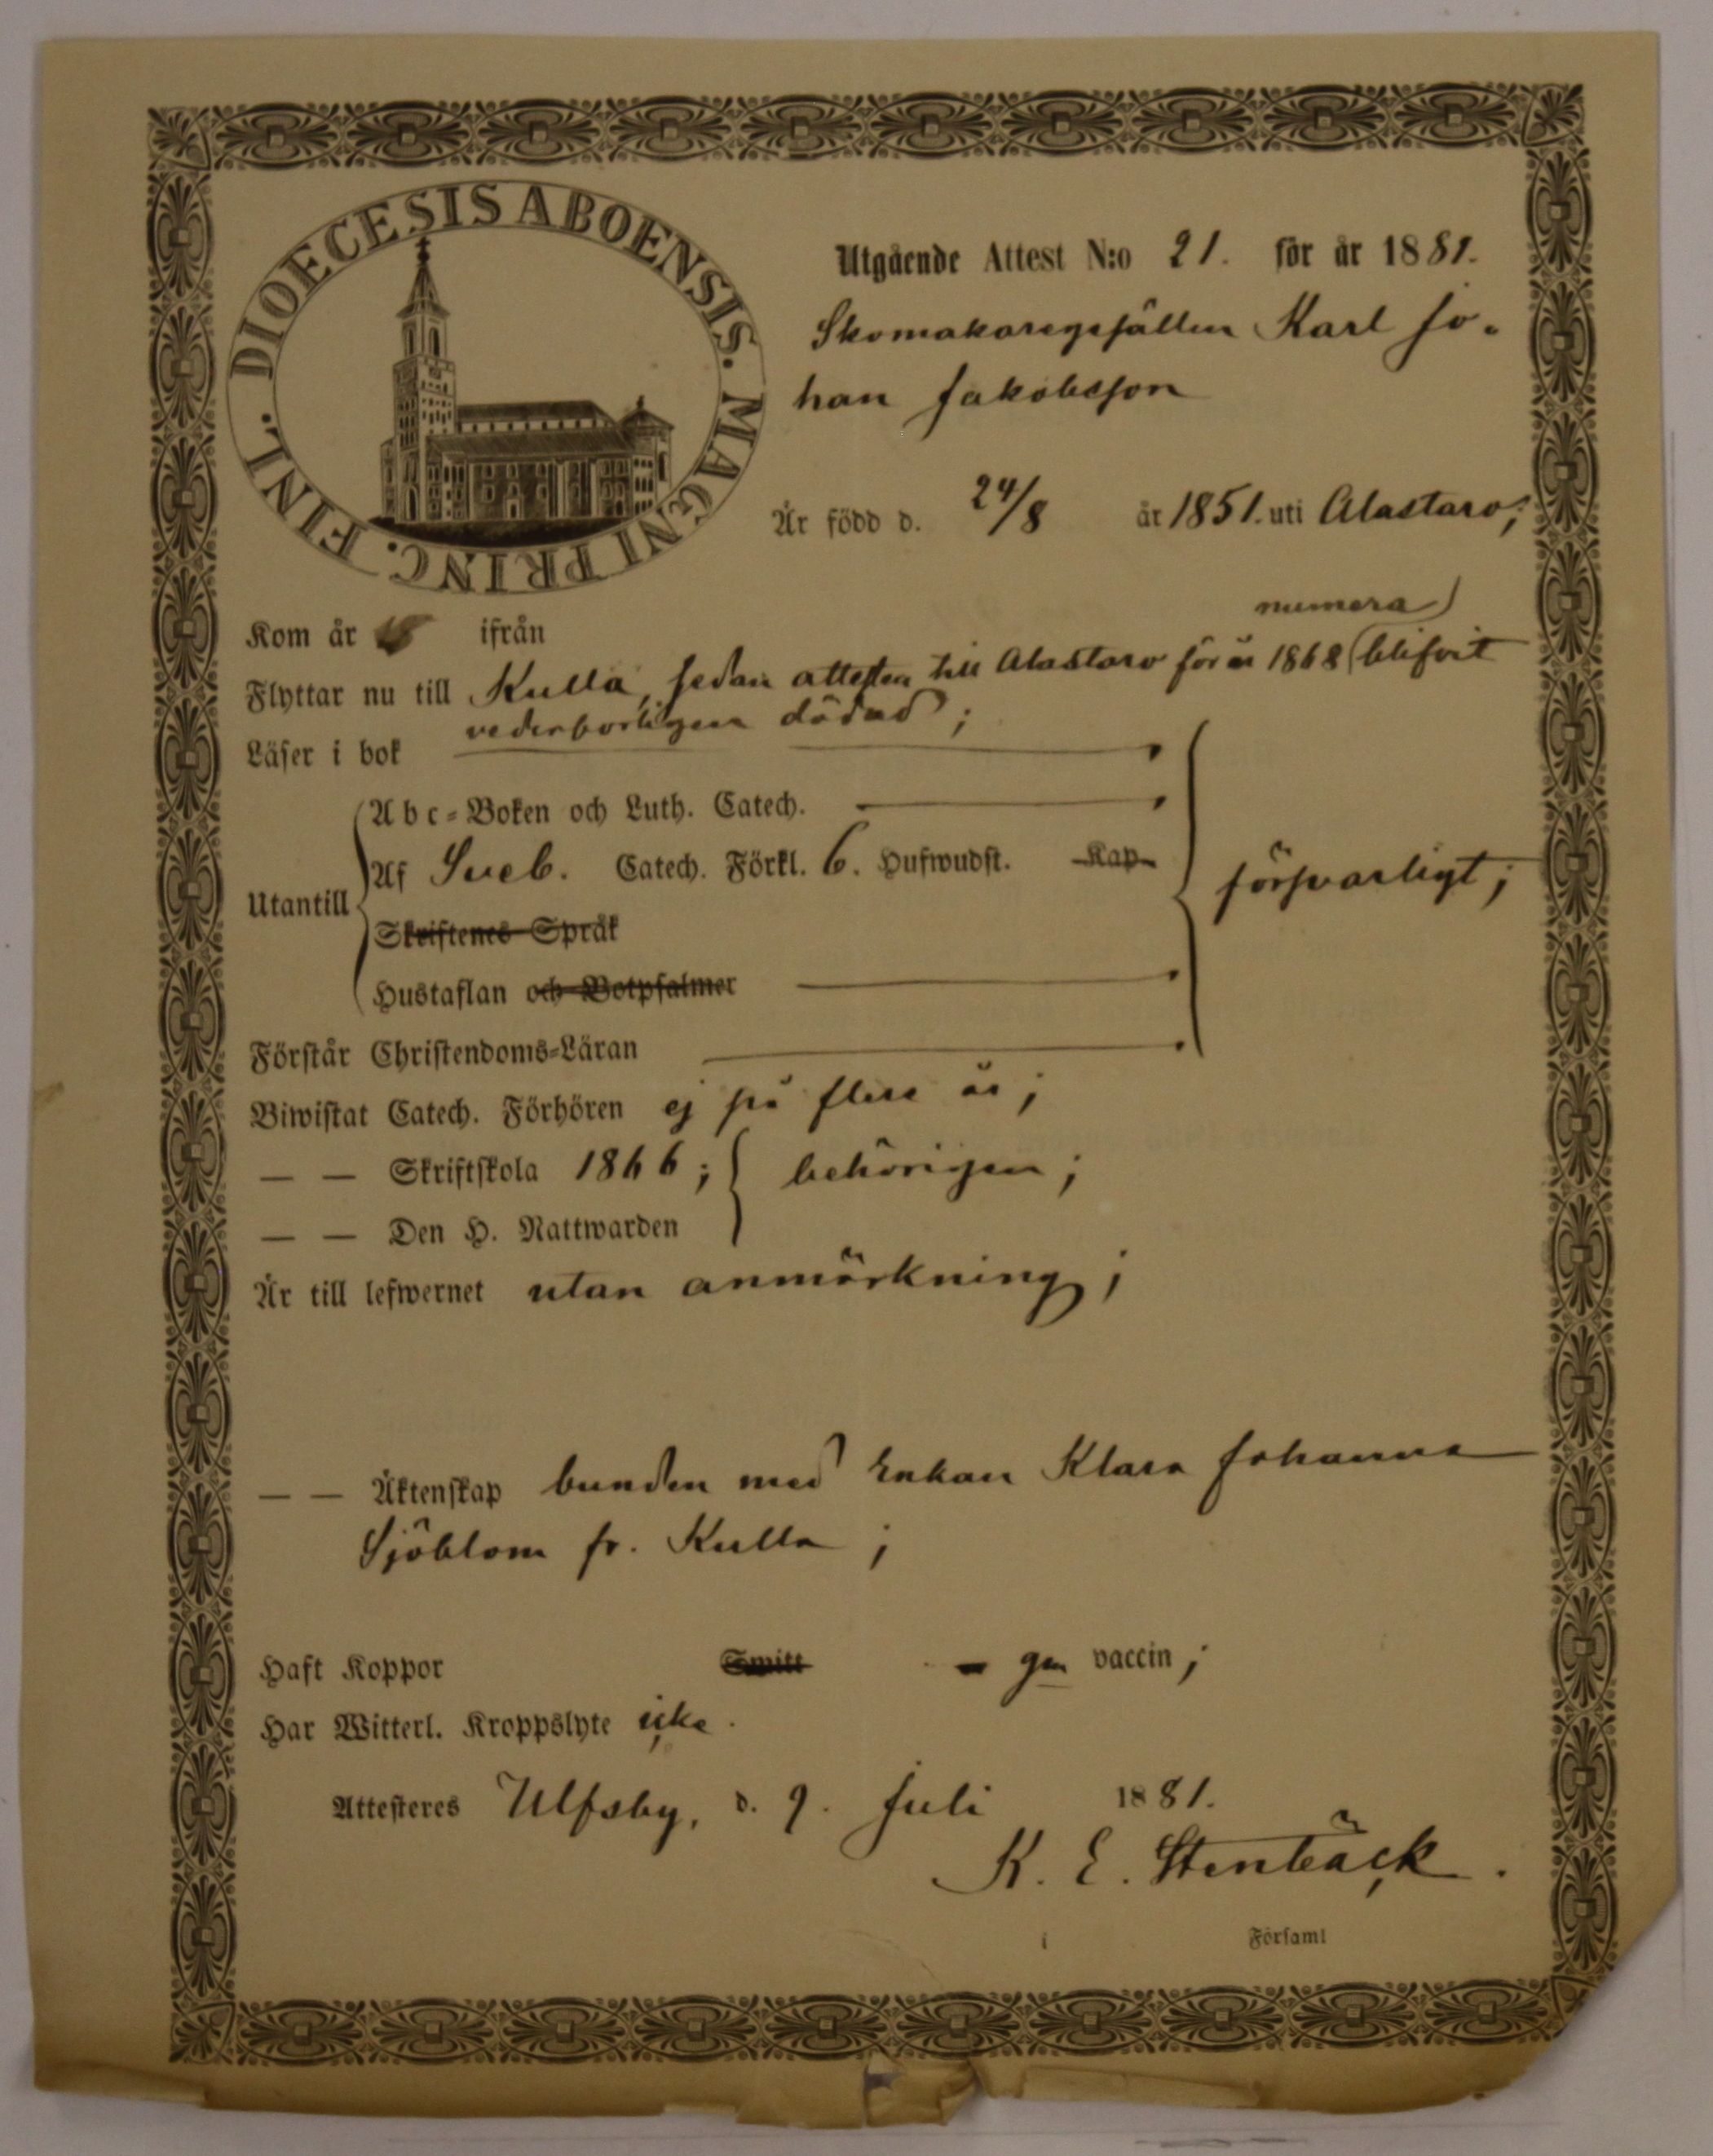 DIOECESIS ABOENSIS. MAGNI PRINC. FINL.
Utgående Attest N:o 21. för år 1881.
Skomakaregesällen Karl Jo-
han Jakobsson
Är född d. 24/8 år 1851. uti Alastaro;
Kom år ifrån
numera
Flyttar nu till Kulla, sedan attesten till Alastaro för år 1868 blifvit
vederbörligen dödad;
Läser i bok
Abc-Boken och Luth. Catech.
Af Sveb. Catech. Förkl. 6. Hufwudst. Kap.
Utantill
försvarligt;
Skriftenes Språk
Hustaflan och Botpsalmer
Förstår Christendoms-Läran
Biwistat Catech. Förhören ej på flere år;
— — Skriftskola 1866; behörigen;
— — Den H. Nattwarden
Är till lefwernet utan anmärkning;
— — Äktenskap bunden med Enkan Klara Johanna
Sjöblom fr. Kulla;
Haft Koppor Smitt gm vaccin;
Har Witterl. Kroppslyte icke.
Attesteres Ulfsby, d. 9. Juli 1881.
K. E. Stenbäck.
i Församl